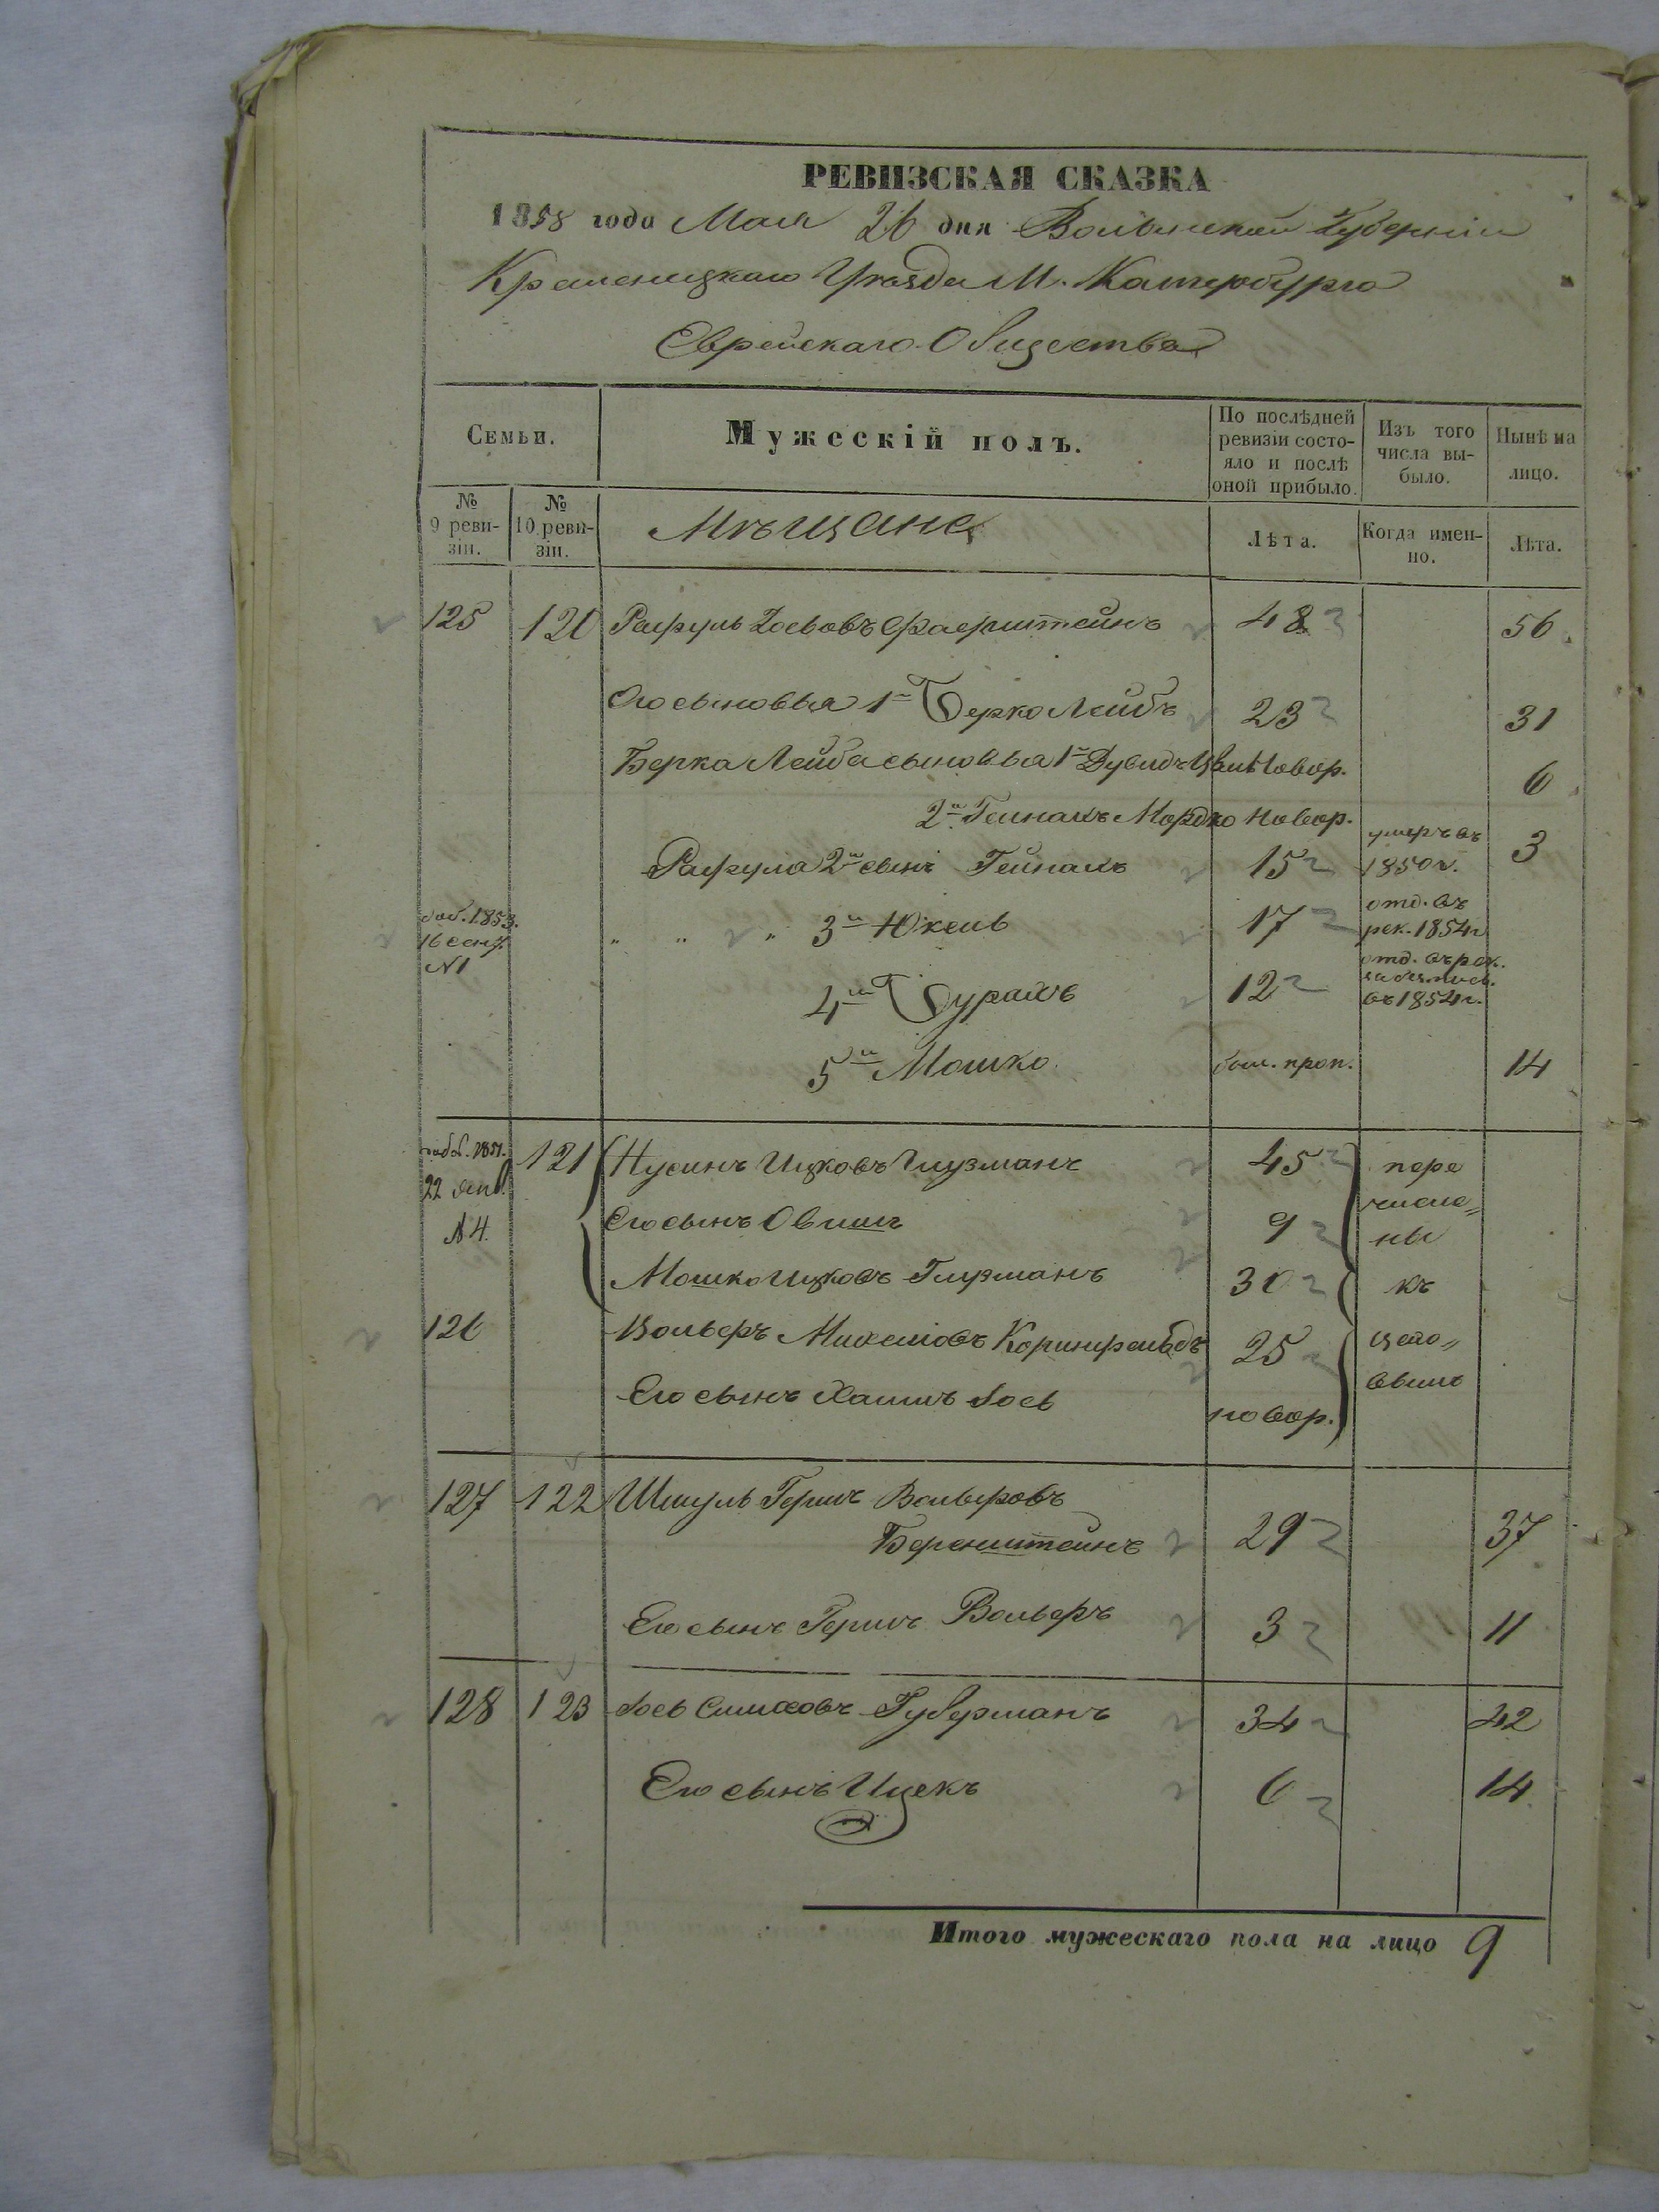 РЕВИЗСКАЯ СКАЗКА
1858 года Мая 26 дня Волынской Губерніи
Кременецкаго Уѣзда М. Катербурга
Еврейскаго Общества
Семьи.
Мужескій полъ.
По послѣдней ревизіи состояло и послѣ оной прибыло.
Изъ того числа выбыло.
Нынѣ на лицо.
№ 9 ревизіи.
№ 10 ревизіи.
Мѣщане
Лѣта.
Когда именно.
Лѣта.
125 120 Рафуль Іосьовъ Фаерштейнъ 48 56
Его сыновья 1й Берко Лейбъ 23 31
Берка Лейба сыновья 1й Дувидъ Новор. 6
2й Гейнахъ Мордко новор. 3
Рафула 2й сынъ Гейнахъ 15 умеръ въ 1850 г.
доб. 1853. 16 №1 " " " 3й Юкель 17 отд. въ рек. 1854 г.
4й Бурахъ 12 отд. въ рек. въ 1854 г.
5й Мошко. был. проп. 14
доб. 1851. 22 №4. 121 Нусинъ Ицковъ Глузманъ 45 пере
Его сынъ Овшия 9 числе=
ны
Мошко Ицковъ Глузманъ 30 къ
126 Вольфъ Михелiовъ Коринфельдъ 25
Его сынъ Хаимъ Іось новор.
127 122 Шмуль Гершъ Вольфовъ
Беренштейнъ 29 37
Его сынъ Гершъ Вольфъ 3 11
128 123 Іось Симховъ Губерманъ 34 42
Его сынъ Ицекъ 6 14
Итого мужескаго пола на лицо 9